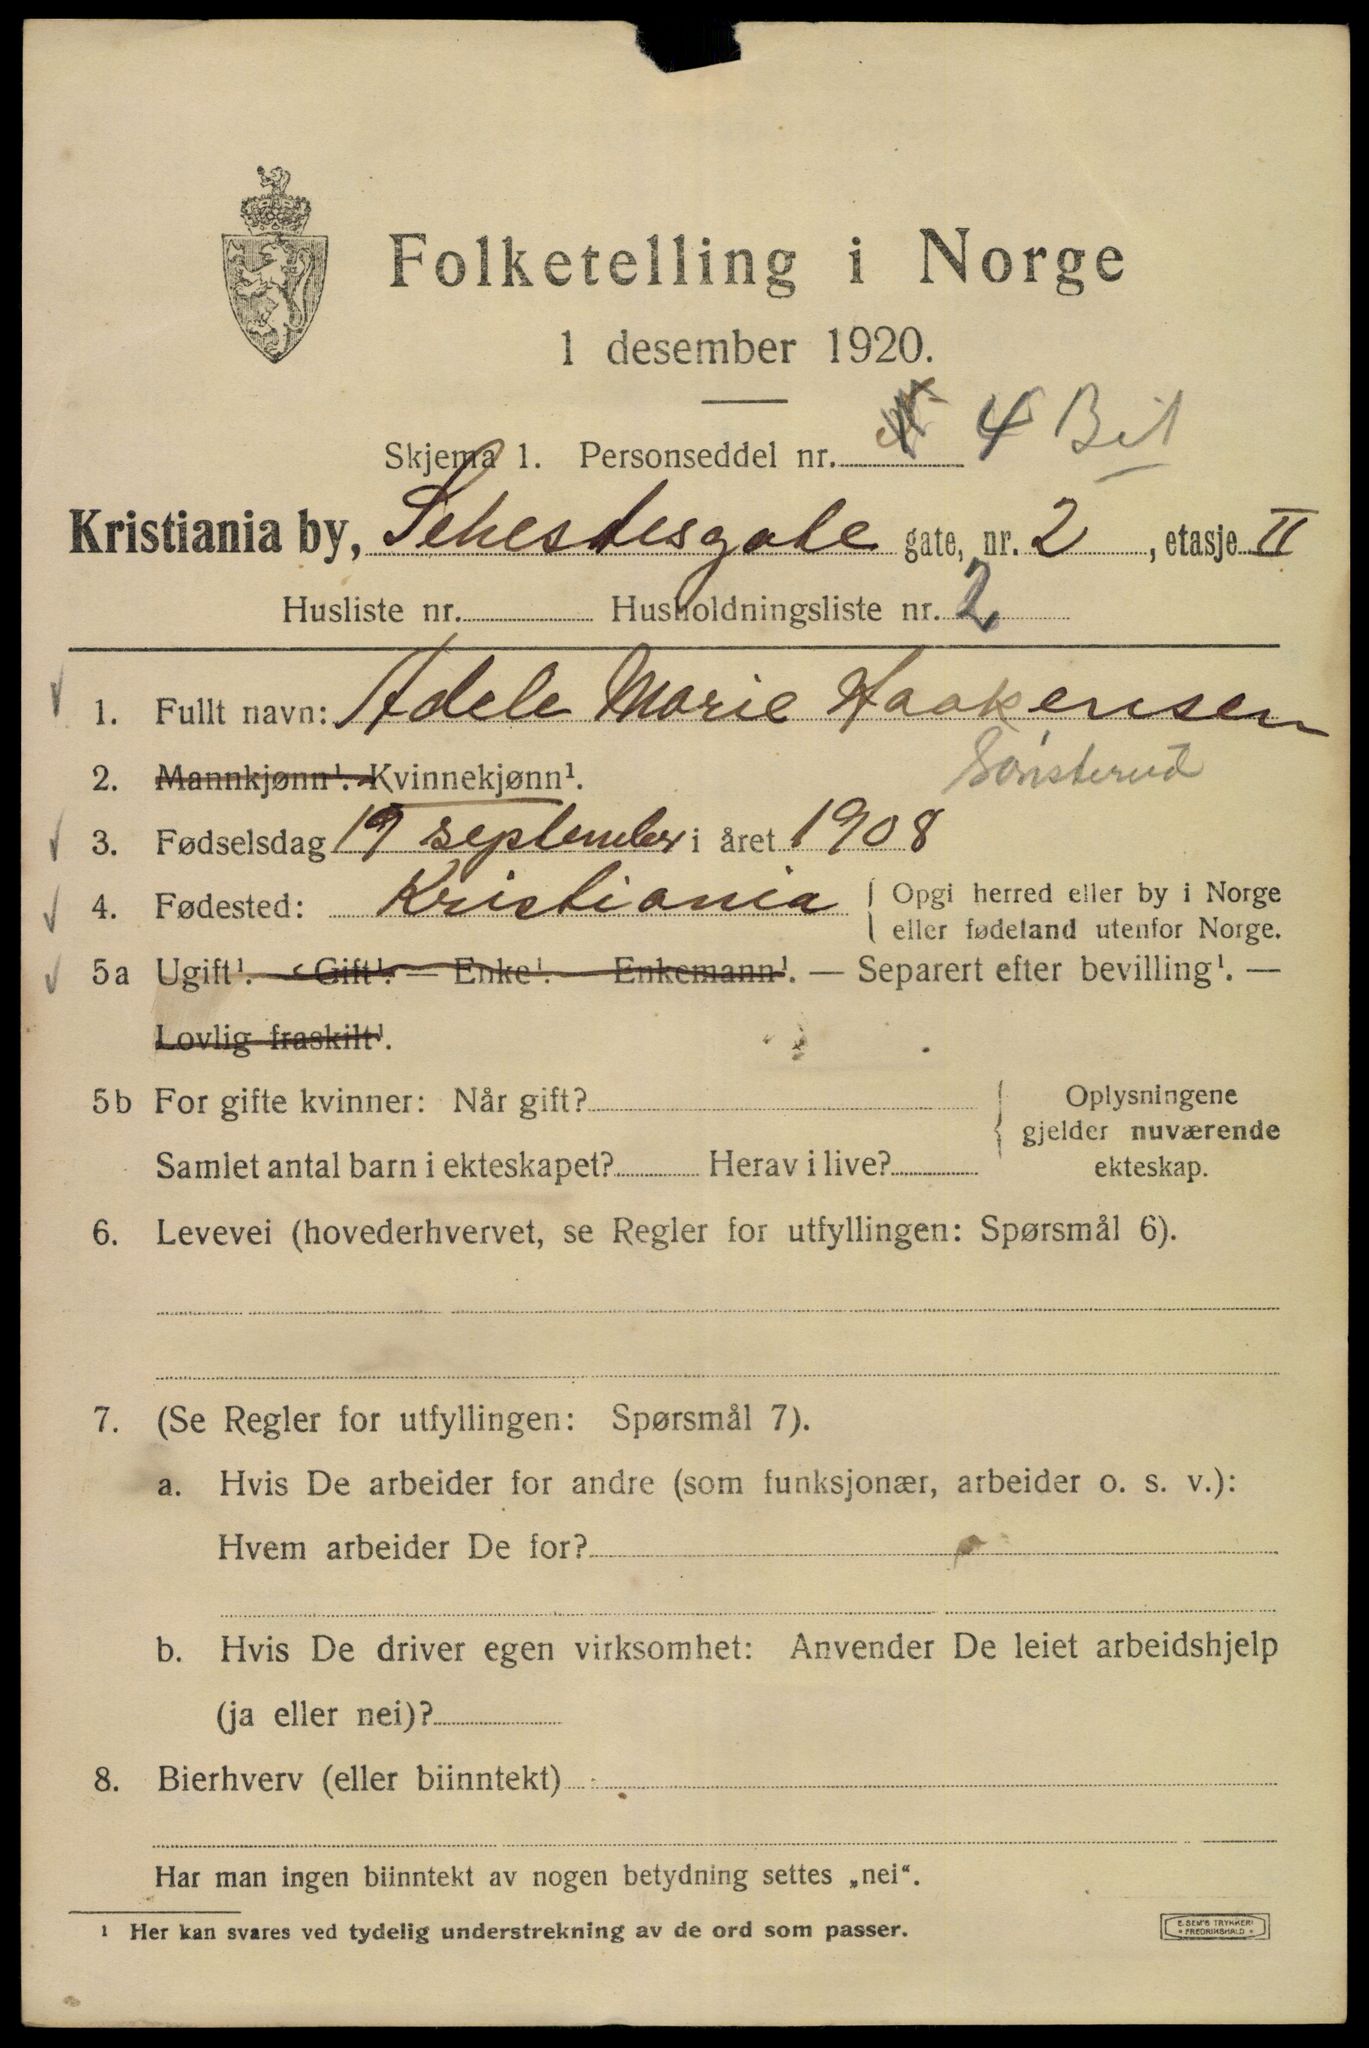 Folketelling i Norge
1 desember 1920.
Skjema 1. Personseddel nr. 4 Bil
Kristiania by, Sehestesgate gate, nr. 2, etasje II
Husliste nr. Husholdningsliste nr. 2
1. Fullt navn: Adele Marie Haakensen
Sønsterud
2. Mannkjønn¹. Kvinnekjønn¹.
3. Fødselsdag 19 september i året 1908
4. Fødested: Kristiania { Opgi herred eller by i Norge
eller fødeland utenfor Norge.
5a Ugift¹. — Gift¹. — Enke¹. — Enkemann¹. — Separert efter bevilling¹. —
Lovlig fraskilt¹.
5b For gifte kvinner: Når gift? { Oplysningene
gjelder nuværende
Samlet antal barn i ekteskapet? Herav i live? ekteskap.
6. Levevei (hovederhvervet, se Regler for utfyllingen: Spørsmål 6).
7. (Se Regler for utfyllingen: Spørsmål 7).
a. Hvis De arbeider for andre (som funksjonær, arbeider o. s. v.):
Hvem arbeider De for?
b. Hvis De driver egen virksomhet: Anvender De leiet arbeidshjelp
(ja eller nei)?
8. Bierhverv (eller biinntekt)
Har man ingen biinntekt av nogen betydning settes „nei“.
¹ Her kan svares ved tydelig understrekning av de ord som passer.
E. SEM'S TRYKKERI
FREDRIKSHALD